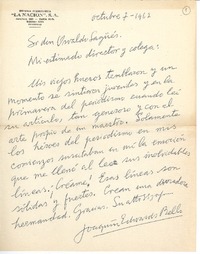 "LA NACION", S. A.
octubre 7 - 1962
Sr don Osvaldo
Mi estimado director y colega:
Mis viejos huesos temblaron y un
momento se sintieron juveniles y en la
primavera del periodismo cuando leí
su artículo, tan generoso y con el
arte propio de un maestro. Solamente
los héroes del periodismo en mis
comienzos suscitaban en mí la emoción
que me llenó al leer sus inolvidables
líneas; Créame! Esas líneas son
solidas y fuertes. Crean una
hermandad. Gracias. Su atto S.S. y
Joaquín Edwards Bello